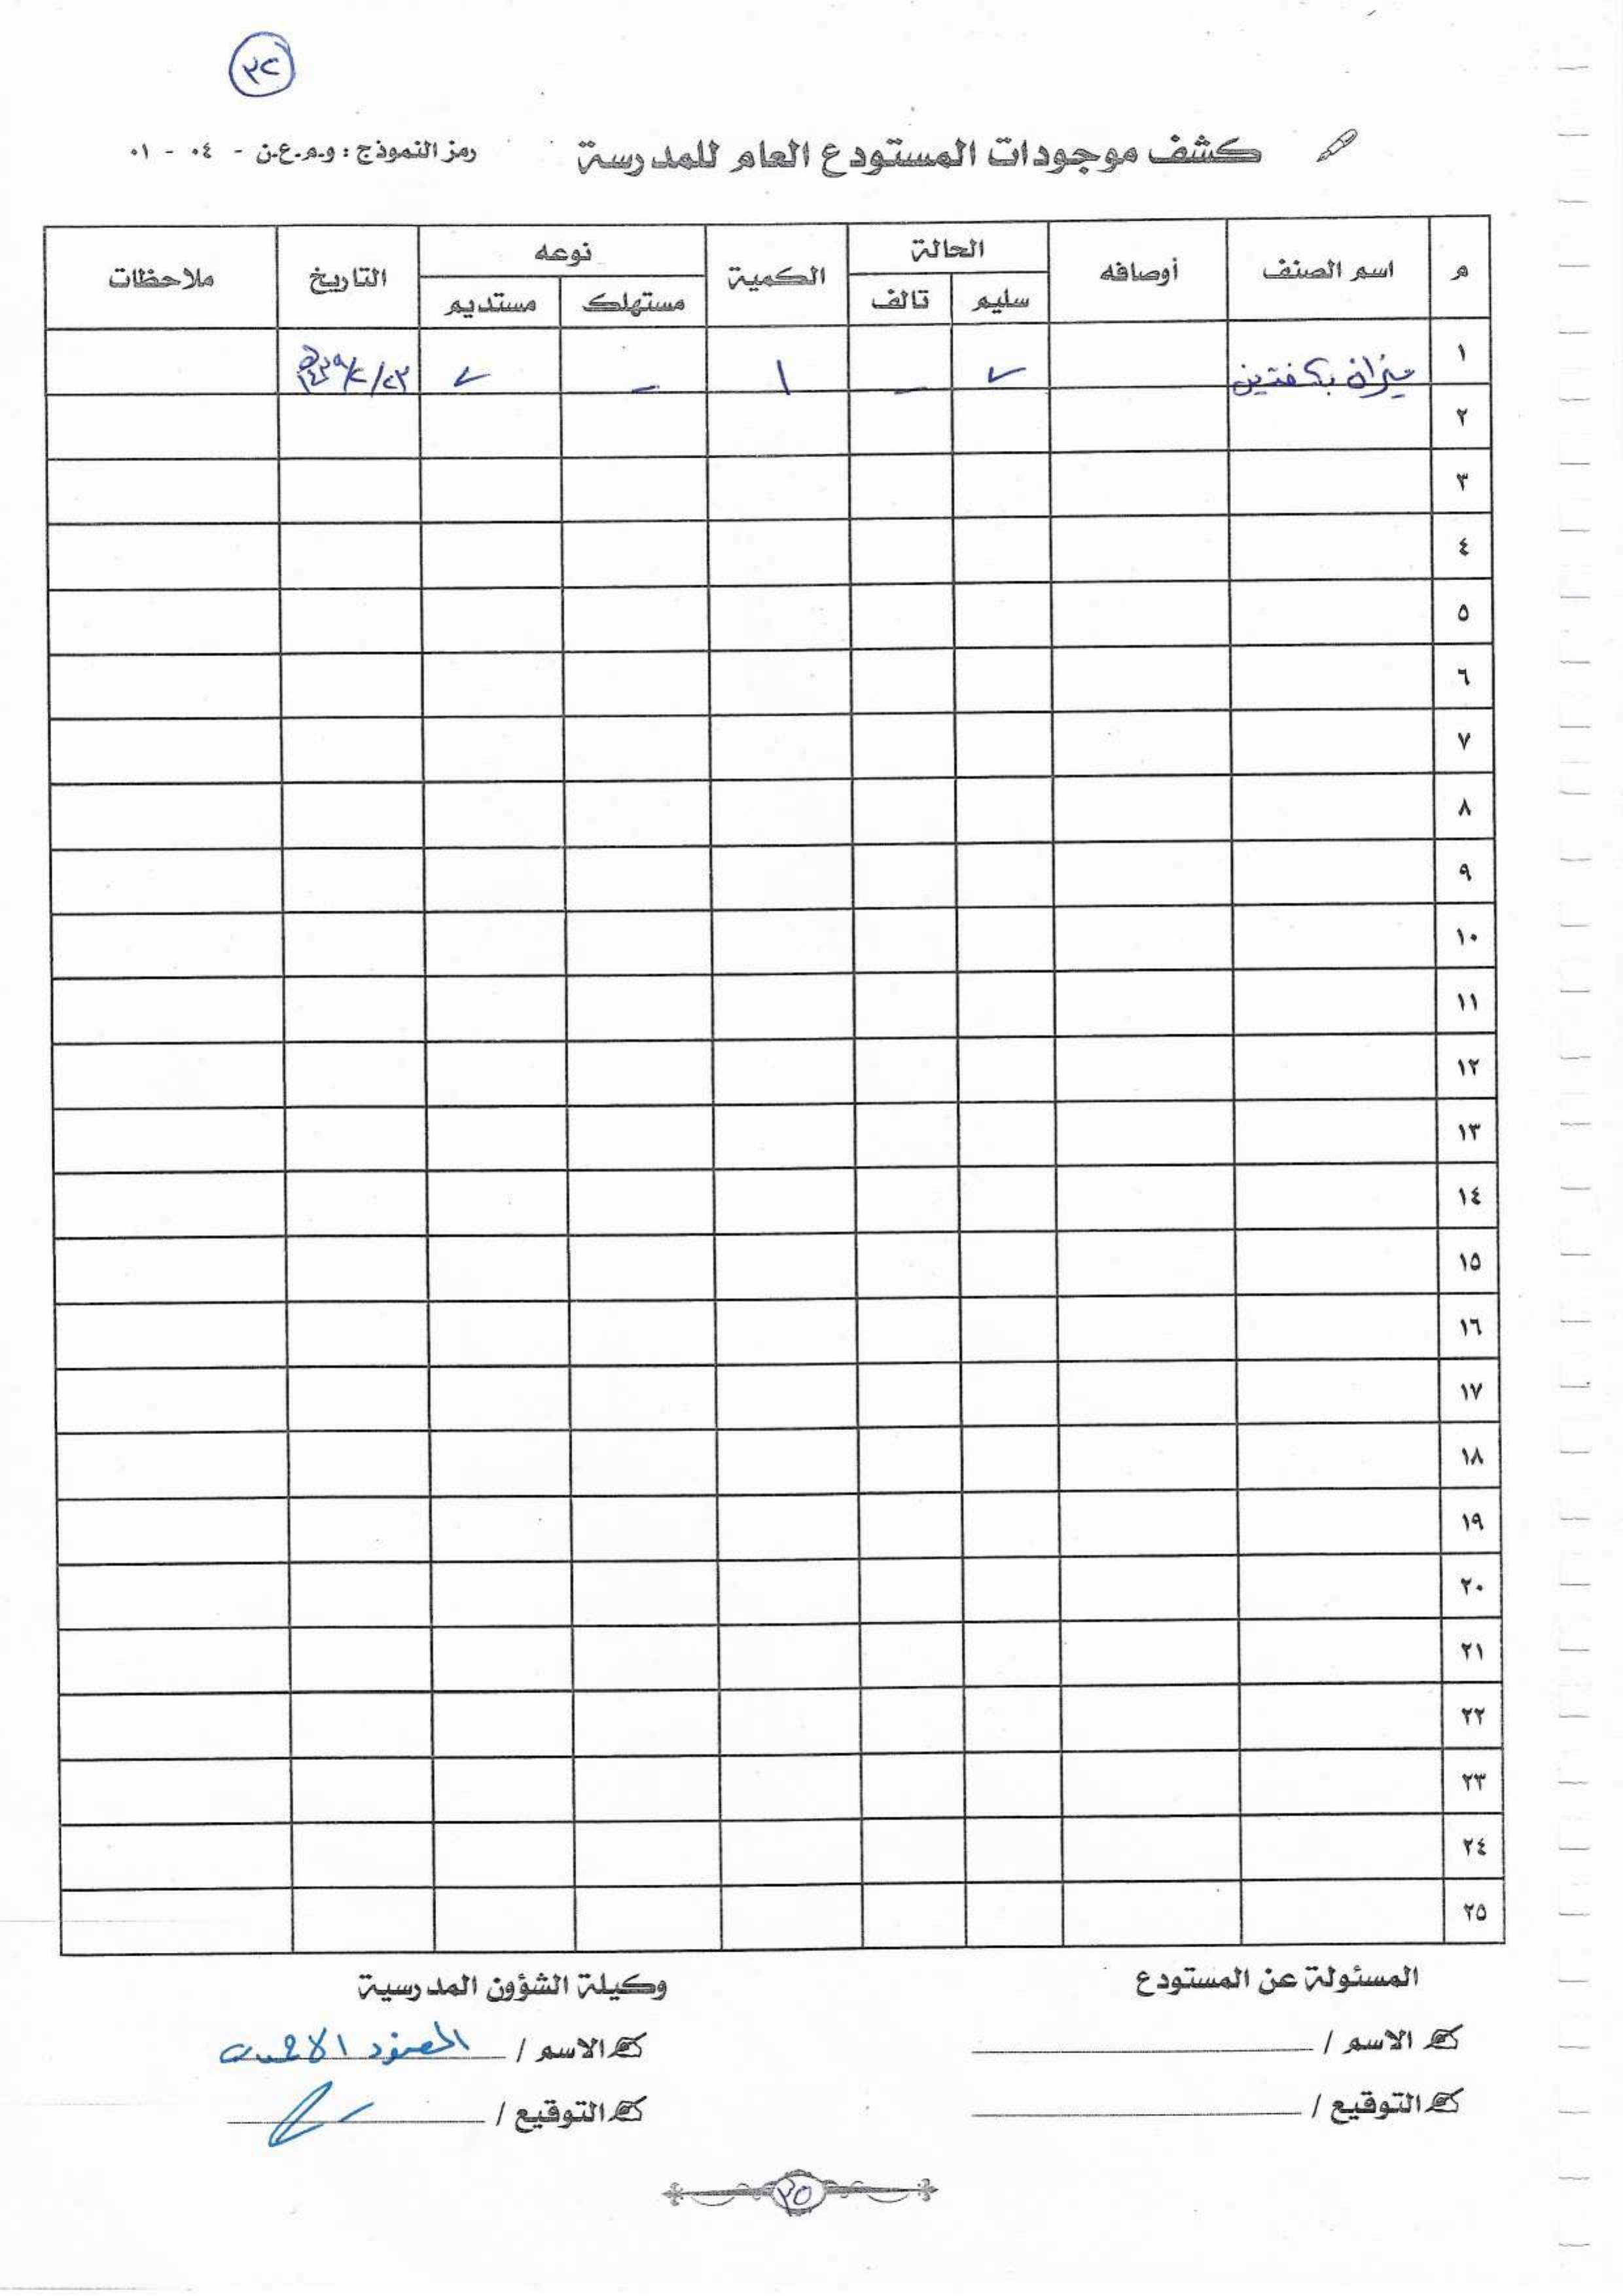 ٣٢
كشف موجودات المستودع العام للمدرسة
رمز النموذج : و.م.ع.ن - ٠٤ - ٠١
م اسم الصنف أوصافه الحالة الكمية نوعه التاريخ ملاحظات
سليم تالف مستهلك مستديم
١ ميزان بكفتين ✓ – ١ – ✓
٢
٣
٤
٥
٦
٧
٨
٩
١٠
١١
١٢
١٣
١٤
١٥
١٦
١٧
١٨
١٩
٢٠
٢١
٢٢
٢٣
٢٤
٢٥
المسئولة عن المستودع
وكيلة الشؤون المدرسية
الاسم /
الاسم / العنود
التوقيع /
التوقيع /
٣٥